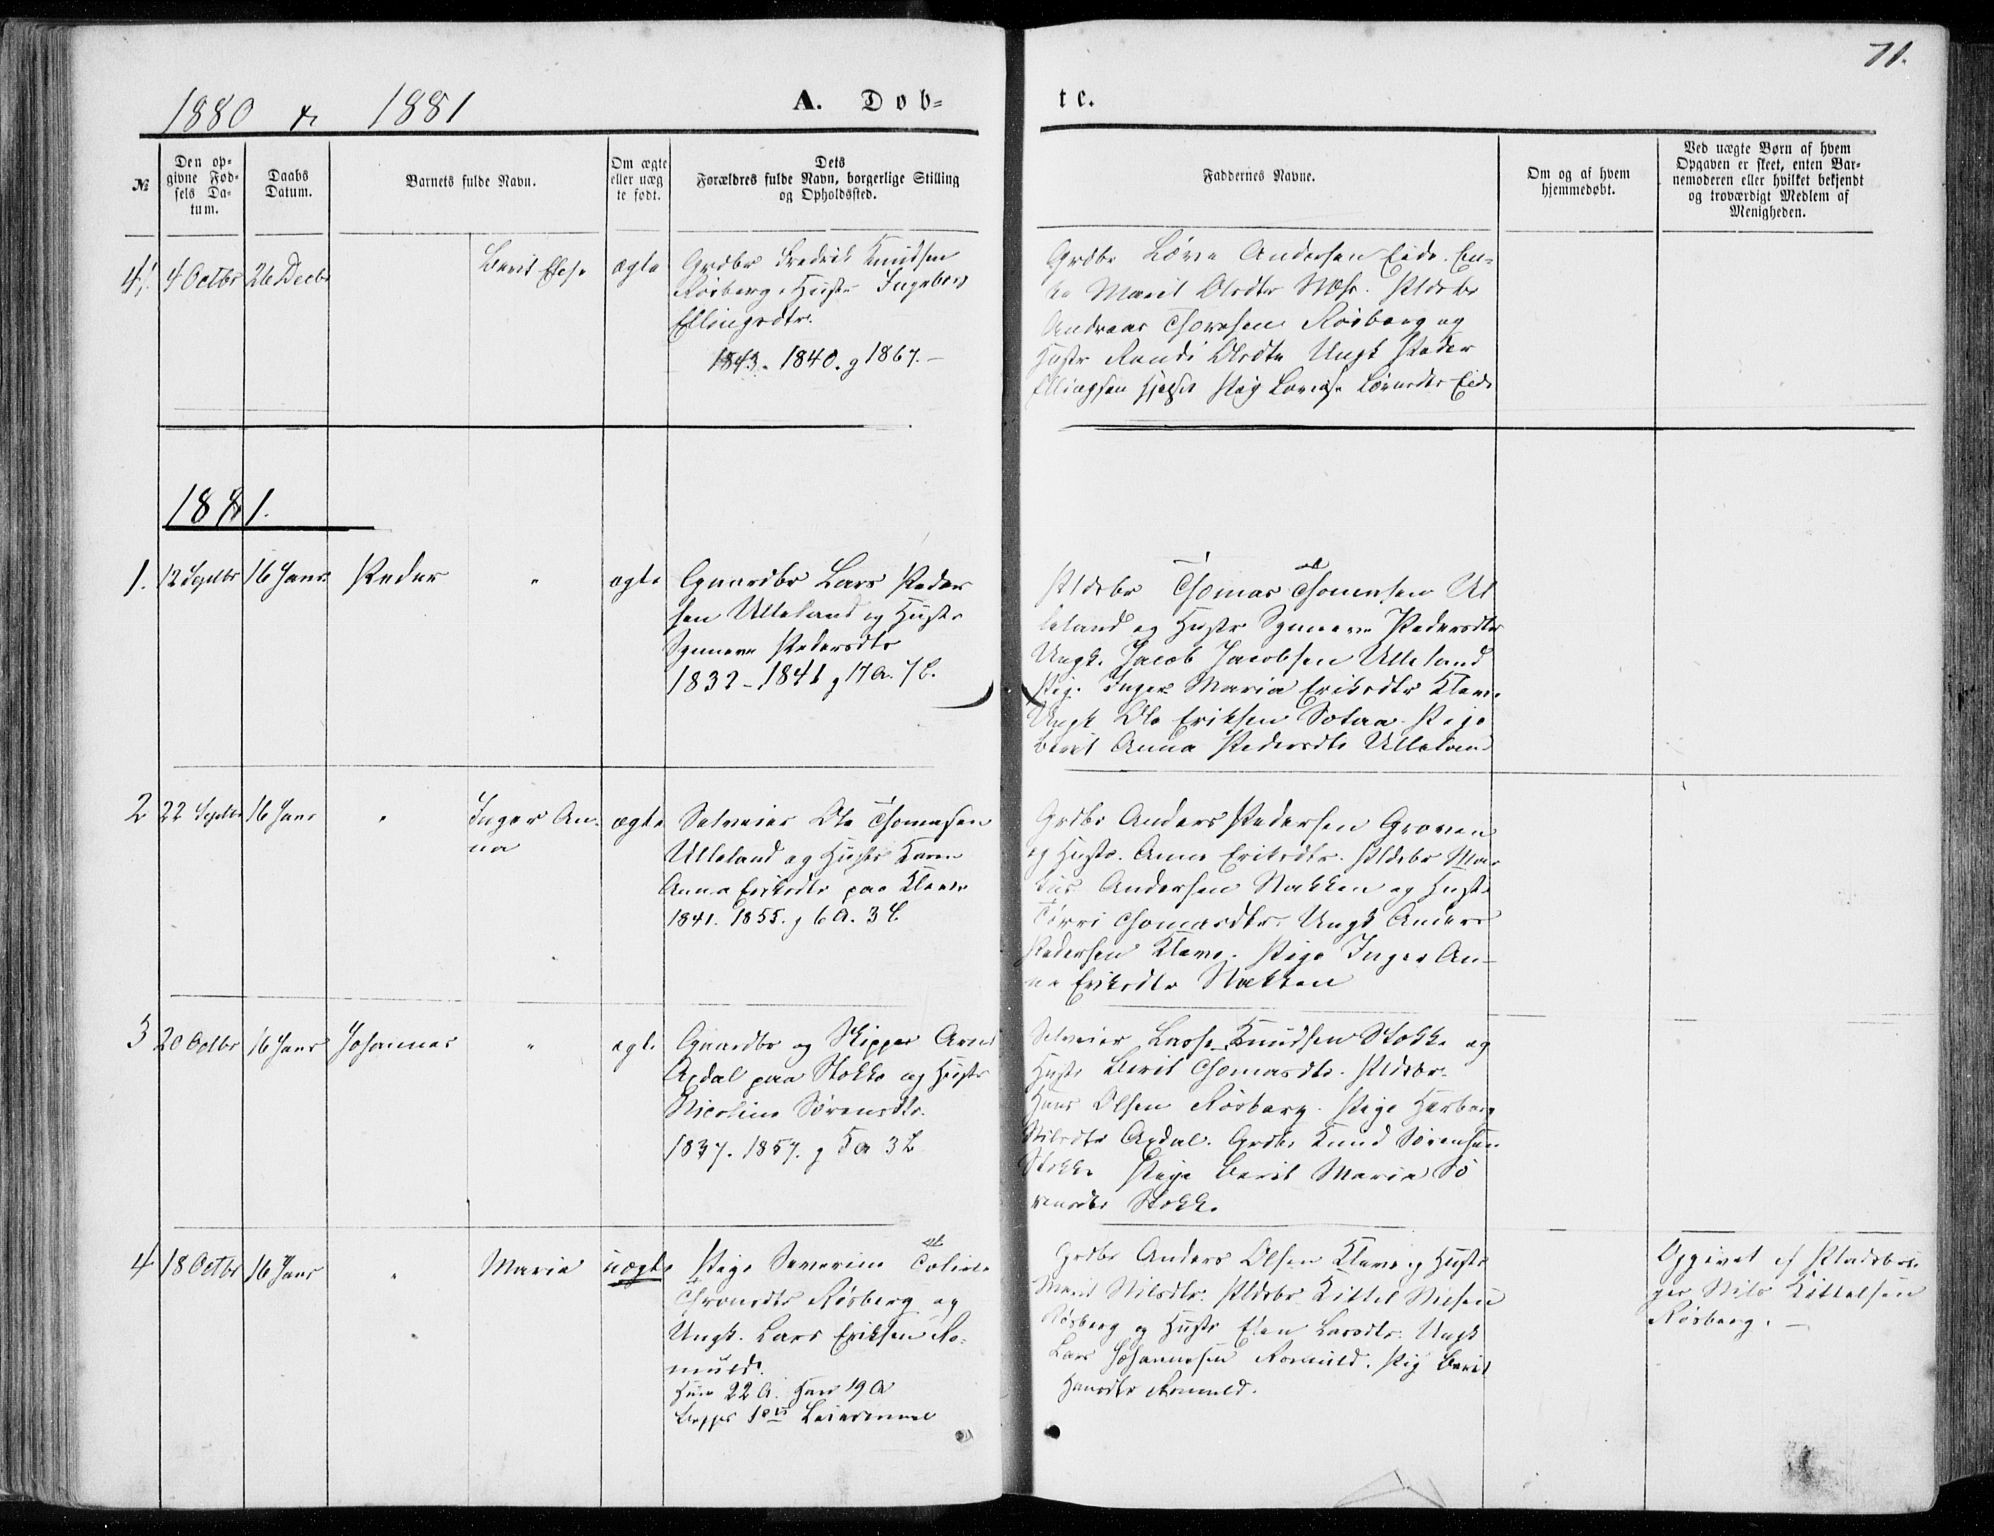 71.
1880 & 1881
A. Døb-
te.
No
Den op-
givne Fød-
sels Da-
tum.
Daabs
Datum.
Barnets fulde Navn.
Om ægte
eller uæg
te født.
Dets
Forældres fulde Navn, borgerlige Stilling
og Opholdssted.
Faddernes Navne.
Om og af hvem
hjemmedøbt.
Ved uægte Børn af hvem
Opgaven er skeet, enten Bar-
nemoderen eller hvilket bekjendt
og troværdigt Medlem af
Menigheden.
4 Octbr 26 Decbr
Berit Else ægte
Grdbr Fredrik Knudsen
Røsberg. Hustr Ingebor
Ellingsdtr.
1843. 1840. g 1867.
Grdbr Andersen Eide. En-
ke Marit Olsdtr Næss. Pldsbr
Andreas Thoresen Røsberg og
Hustr Randi Olsdtr Ungk Peder
Ellingsen Pig Eide
1881.
1. 12 Septbr 16 Janr Peder " ægte
Gaardbr Lars Peder
sen Ulleland og Hustr
Synneve Pedersdtr
1832 - 1841 g 17 A. 7 b.
Pldsbr Thomas Thomasen Ul
leland og Hustr Synneve Pedersdtr
Ungk. Jacob Jacobsen Ulleland
Pig. Inger Maria Eriksdtr Klave
Ungk Ole Eriksen Solaa. Pige
Berit Anna Pedersdtr Ulleland
2 22 Septbr 16 Janr " Inger An-
na
ægte
Selveier Ole Thomasen
Ulleland og Hustr Karen
Anna Eriksdtr paa Klave
1841. 1855. g 6 A. 3 b.
Grdbr Anders Pedersen Groven
og Hustr. Anne Eriksdtr. Pldsbr Mar
Andersen Nakken og Hustr
Thomasdtr. Ungk Anders
Pedersen Klave. Pige Inger An-
na Eriksdtr Nakken
3 20 Octbr 16 Janr Johannes " ægte
Gaardbr og Skipper Arnt
Apdal paa Stokke og Hustr
Nicoline Sørensdtr.
1837. 1857. g 5 A 3 b
Selveier Lasse Knudsen Stokke og
Hustr Berit Thomasdtr. Pldsbr.
Hans Olsen Røsberg. Pige Herborg
Nilsdtr Apdal. Grdbr Knud Sørensen
Stokke Pige Berit Maria Sø
rensdtr Stokke
4 18 Octbr 16 Janr " Maria uægte
Pige Severine
Thronsdtr Røsberg og
Ungk. Lars Eriksen Ro-
muld.
Hun 22 A. Han 19 A
Begges 1ste Leiermaal
Grdbr Anders Olsen Klave og Hustr
Marit Nilsdtr. Pldsbr Kittel Nilsen
Røsberg og Hustr Elen Larsdtr. Ungk
Lars Johannesen Romuld. Pig Berit
Hansdtr Romuld.
Opgivet af Pladsbru
ger Nils Kittelsen
Røsberg.